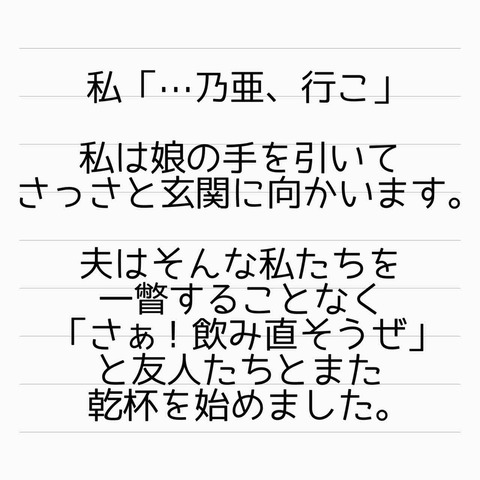 私「…乃亜、行こ」
私は娘の手を引いて
さっさと玄関に向かいます。
夫はそんな私たちを
一瞥することなく
「さぁ！飲み直そうぜ」
と友人たちとまた
乾杯を始めました。